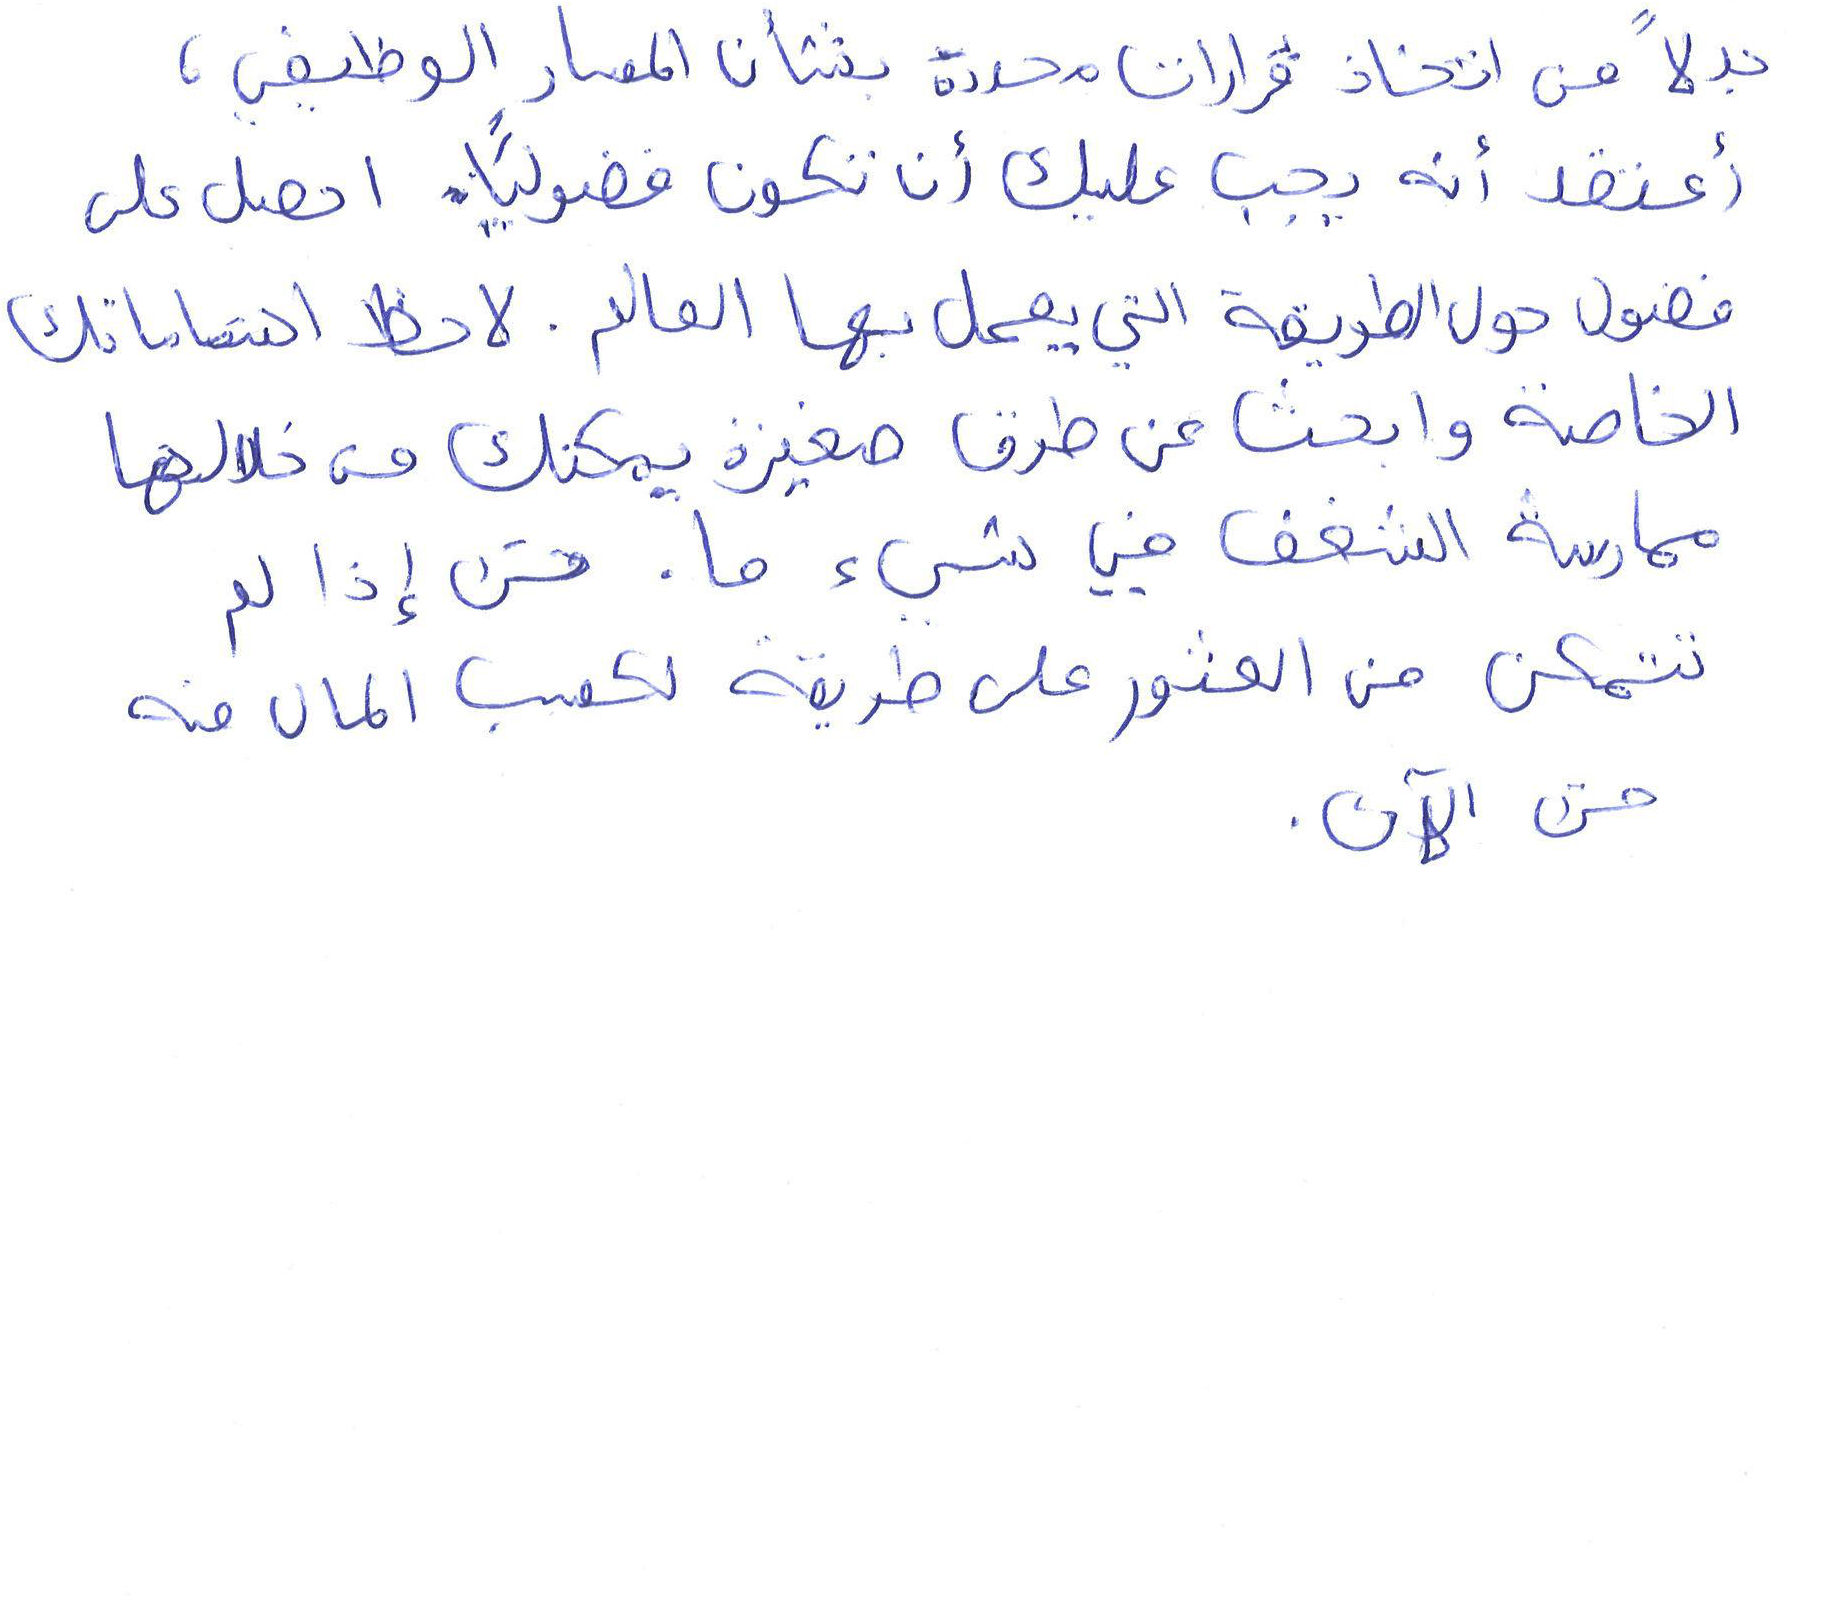 بدلاً من اتخاذ قرارات محددة بشأن المسار الوظيفي،
أعتقد أنه يجب عليك أن تكون فضوليًا. احصل على
فضول حول الطريقة التي يعمل بها العالم. لاحظ اهتماماتك
الخاصة وابحث عن طرق صغيرة يمكنك من خلالها
ممارسة الشغف في شيء ما. حتى إذا لم
تتمكن من العثور على طريقة لكسب المال منه
حتى الآن.